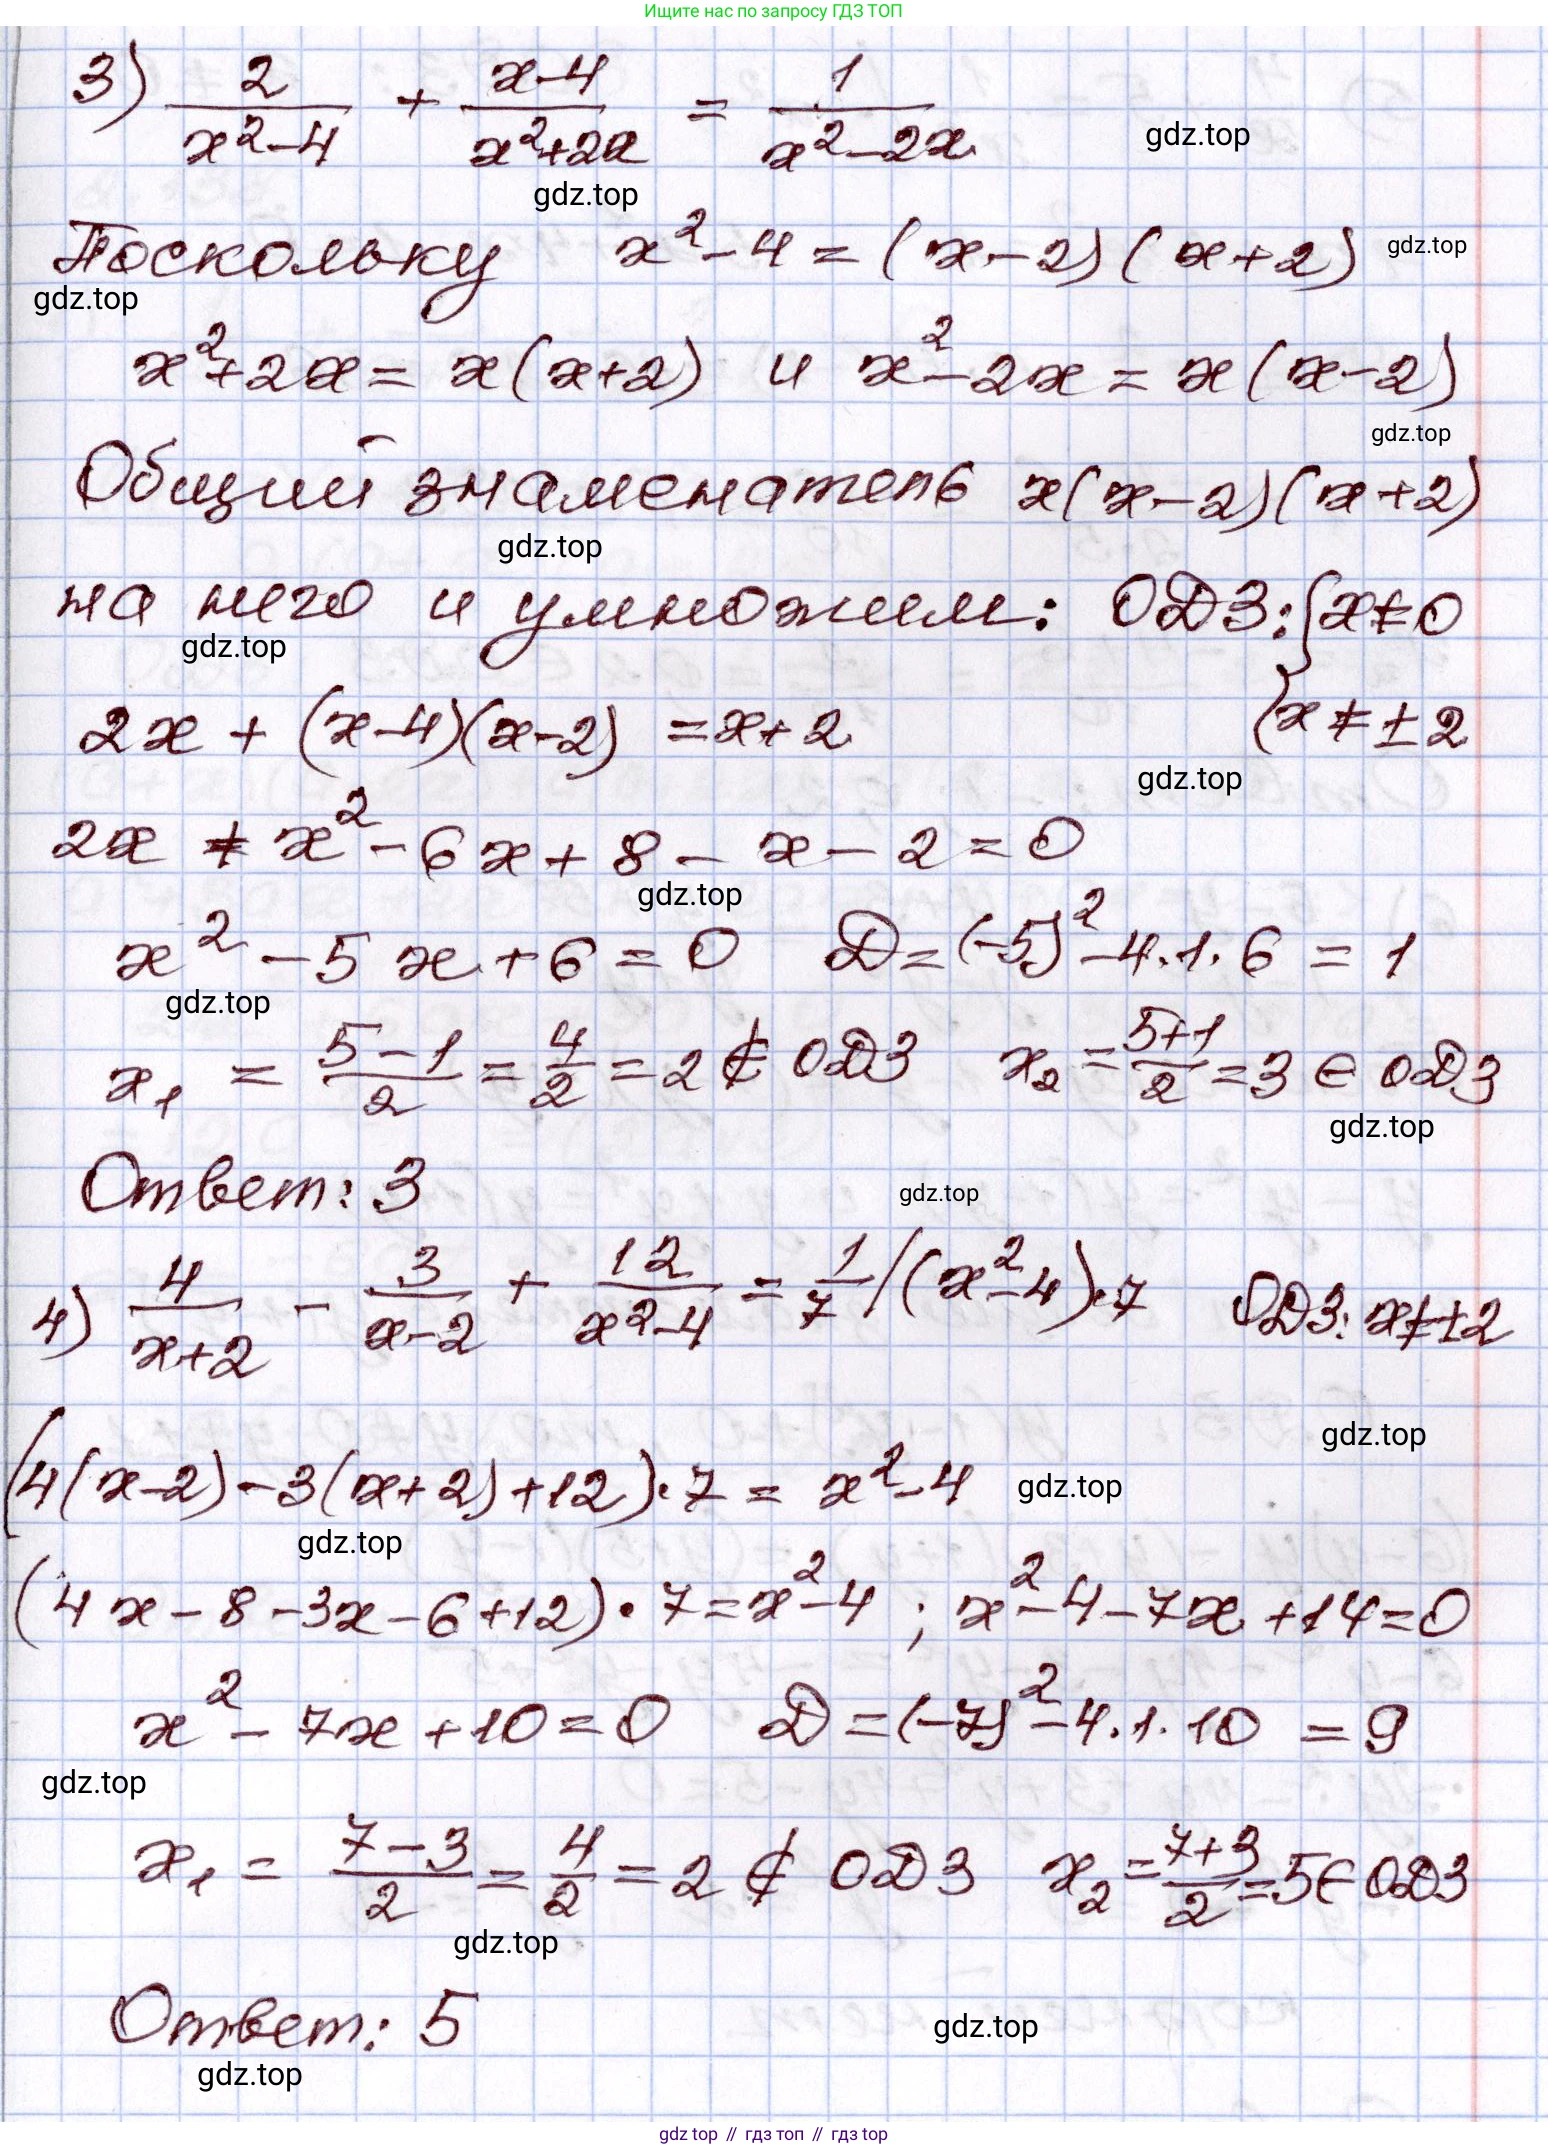 Ищите нас по запросу ГДЗ ТОП
3) 2/(x²-4) + (x-4)/(x²+2x) = 1/(x²-2x)
gdz.top
gdz.top
Поскольку x²-4 = (x-2)(x+2)
gdz.top
gdz.top
x²+2x = x(x+2) и x²-2x = x(x-2)
gdz.top
Общий знаменатель x(x-2)(x+2)
gdz.top
на него и умножим: ОДЗ: { x≠0
gdz.top
2x + (x-4)(x-2) = x+2 x≠±2
gdz.top
2x + x² - 6x + 8 - x - 2 = 0
gdz.top
x² - 5x + 6 = 0 D = (-5)² - 4·1·6 = 1
gdz.top
x₁ = (5-1)/2 = 4/2 = 2 ∉ ОДЗ x₂ = (5+1)/2 = 3 ∈ ОДЗ
gdz.top
Ответ: 3
gdz.top
4) 4/(x+2) - 3/(x-2) + 12/(x²-4) = 1/7 /(x²-4)·7 ОДЗ: x≠±2
gdz.top
(4(x-2) - 3(x+2) + 12)·7 = x²-4
gdz.top
gdz.top
(4x - 8 - 3x - 6 + 12)·7 = x²-4 ; x²-4-7x+14=0
x² - 7x + 10 = 0 D = (-7)² - 4·1·10 = 9
gdz.top
x₁ = (7-3)/2 = 4/2 = 2 ∉ ОДЗ x₂ = (7+3)/2 = 5 ∈ ОДЗ
gdz.top
Ответ: 5
gdz.top
gdz.top
gdz top // гдз топ // гдз top